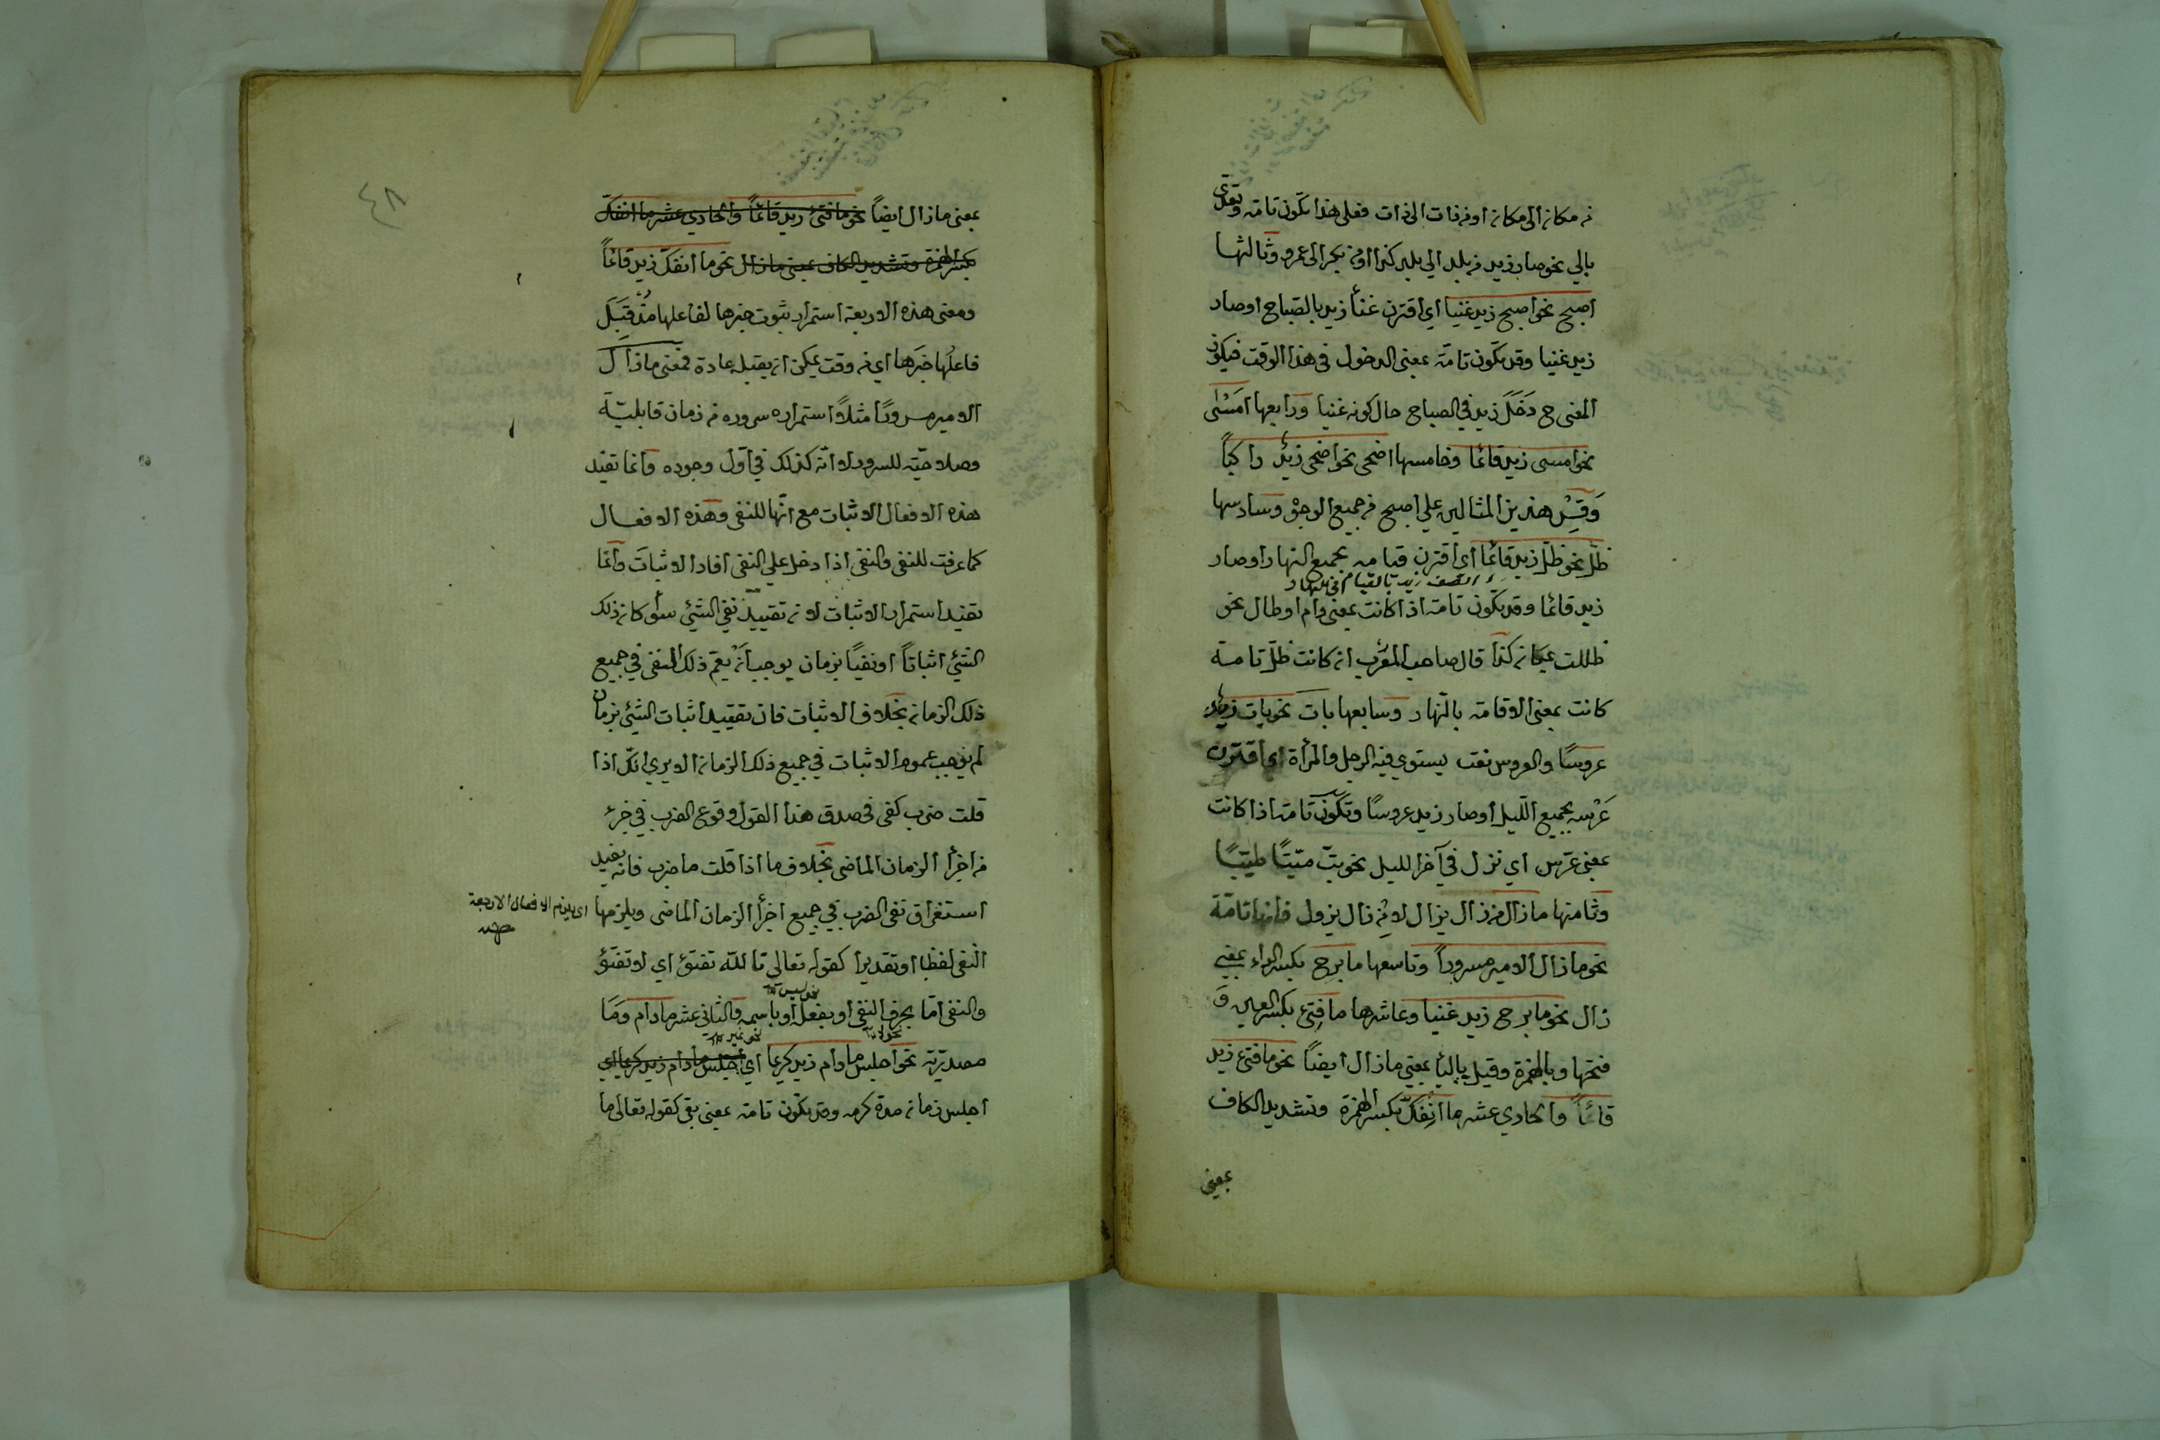 من مكان الى مكان او من ذات الى ذات فعلى هذا تكون تامة وتعدى
بالى نحو صار زيد من بلد الى بلد كذا او من بكر الى عمرو وثالثها
اصبح نحو اصبح زيد غنيا اي اقترن غنأ زيد بالصباح او صار
زيد غنيا وقد تكون تامة بمعنى الدخول في هذا الوقت فيكون
المعنى ح دَخَلَ زيد في الصباح حال كونه غنيا ورابعها امسى
نحو امسى زيد قائما وخامسها اضحى نحو اضحى زيد راكبًا
وَقِسْ هذين المثالين على اصبح في جميع الوجوه وسادسها
ظلّ نحو ظلّ زيد قائما اي اقترن قيامه بجميع النهار او صار
اتصف زيد بالقيام في النهار
زيد قائما وقد تكون تامة اذا كانت بمعنى دام او طال نحو
ظللت بمكان كذا قال صاحب المقرب ان كانت ظلّ تامة
كانت بمعنى الاقامة بالنهار وسابعها بات نحو بات زيد
عروسًا والعروس نعت يستوي فيه الرجل والمرأة اي اقترن
عَرْسه بجميع الليل او صار زيد عروسًا وتكون تامة اذا كانت
بمعنى عرّس اي نزل في آخر الليل نحو بتّ مبيتًا طيّبًا
وثامنها ما زال من زال يزال لا من زال يزول فانها تامة
نحو ما زال الامير مسرورًا وتاسعها ما برح بكسر الراء بمعنى
زال نحو ما برح زيد غنيا وعاشرها ما فتئ بكسر العين وَ
فتحها وبالهمزة وقيل باليأ بمعنى ما زال ايضًا نحو ما فتئ زيد
قائمًا والحادي عشر ما انفكّ بكسر الهمزة وتشديد الكاف
بمعنى
٤٨
بمعنى ما زال ايضاً نحو ما فتئ زيد قائمًا والحادي عشر ما انفكّ
بكسر الهمزة وتشديد الكاف بمعنى ما زال نحو ما انفكّ زيد قائمًا
ومعنى هذه الاربعة استمرار ثبوت خبرها لفاعلها مذ قَبِلَ
فاعلُها خبرَها اي في وقت يمكن ان يقبله عادة فمعنى ما زال
الامير مسرورًا مثلاً استمراره سروره في زمان قابليّة
وصلاحيّته للسرور لا انّه كذلك في اوّل وجوده وانما تفيد
هذه الافعال الاثبات مع انّها للنفي وهذه الافعال
كما عرفت للنفي والنفي اذا دخل على النفي افاد الاثبات وانما
تفيد استمرار الاثبات لان تقييد نفي الشئ سوأ كان ذلك
الشئ اثباتاً او نفيًا بزمان يوجب ان يعمّ ذلك النفي في جميع
ذلك الزمان بخلاف الاثبات فان تقييد اثبات الشئ بزمان
لم يوجب عموم الاثبات في جميع ذلك الزمان الا يرى انّك اذا
قلت ضرب كفى في صدق هذا القول وقوع الضرب في جزء
من اجزأ الزمان الماضي بخلاف ما اذا قلت ما ضرب فانه يفيد
استغراق نفي الضرب في جميع اجزأ الزمان الماضي ويلزمها
اي يلزم الافعال الاربعة
النفي لفظا او تقديرا كقوله تعالى تالله تفتؤ اي لا تفتؤ
نحو ليس
والنفي امّا بحرف النفي او بفعله او باسمه والثاني عشر ما دام وما
نحو لا
نحو غير
مصدريّة نحو اجلس ما دام زيد كريما اي اجلس ما دام زيد كريما اي
اجلس زمان مدة كرمه وقد تكون تامة بمعنى بقي كقوله تعالى ما